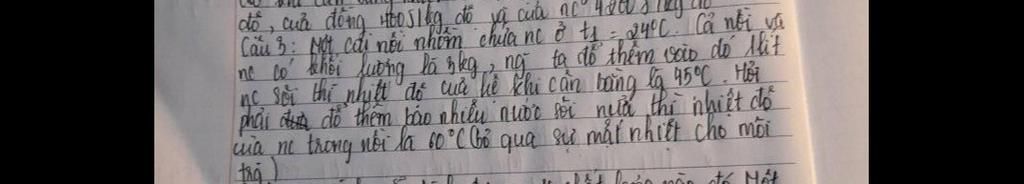 độ, của đồng 400J/kg độ và của nc 4200 J/kg độ
Câu 3: Một cái nồi nhôm chứa nc ở t1 = 24°C. Cả nồi và
nc có khối lượng là 3kg, ng ta đổ thêm vào đó 1 lít
nc sôi thì nhiệt độ của hệ khi cân bằng là 45°C. Hỏi
phải đổ thêm bao nhiêu nước sôi nữa thì nhiệt độ
của nc trong nồi là 60°C (bỏ qua sự mất nhiệt cho môi
trg)
Một